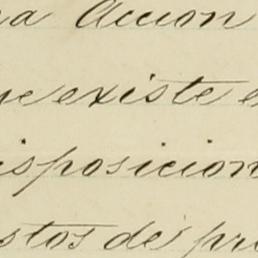 na accion
ue existe e
isposicion
stos de pr